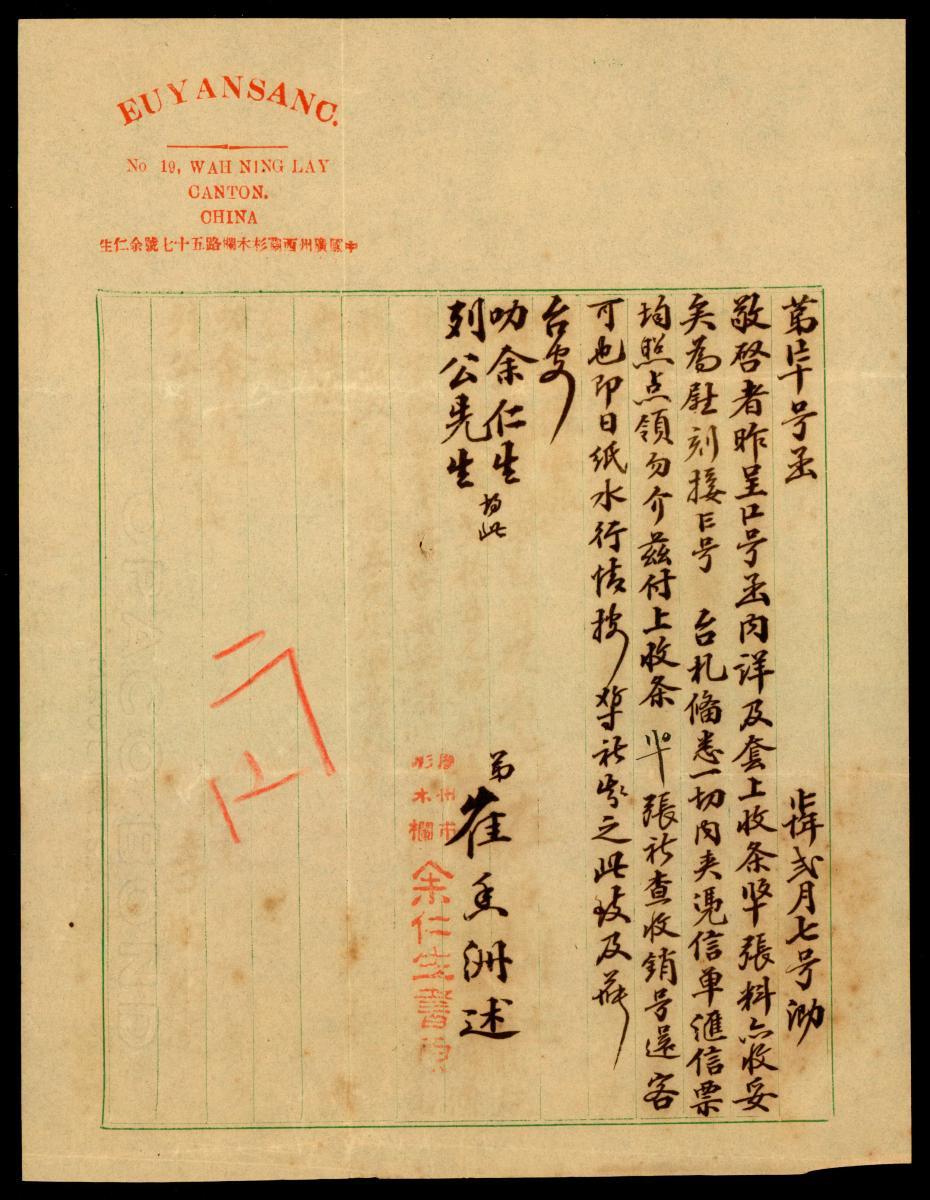 EU YAN SANG.
No 19, WAH NING LAY
CANTON.
CHINA
中國廣州西關杉木欄路五十七號余仁生
号函 年弍月七号泐
敬啓者昨呈 号函内詳及套上收条 張料亦收妥
矣為慰刻接 号 台札俻悉一切内夹凴信单滙信票
均照点領勿介兹付上收条 張祈查收銷号還客
可也即日纸水行情按 祈 之此致及
台安
叻余仁生 均此
列公先生
弟崔 洲述
廣州市
杉木欄
余仁生書